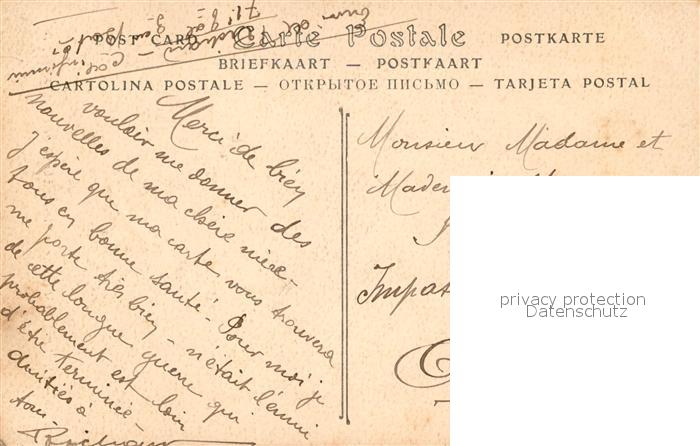 POST CARD Carte Postale POSTKARTE
BRIEFKAART — POSTKAART
CARTOLINA POSTALE — ОТКРЫТОЕ ПИСЬМО — TARJETA POSTAL
Merci de bien
vouloir me donner des
nouvelles de ma chère mère -
J'espère que ma carte vous trouvera
tous en bonne santé - Pour moi je
me porte très bien - n'était l'ennui
de cette longue guerre qui
probablement est loin
d'être terminée -
Amitiés à
tous -
Monsieur Madame et
Impas
privacy protection
Datenschutz